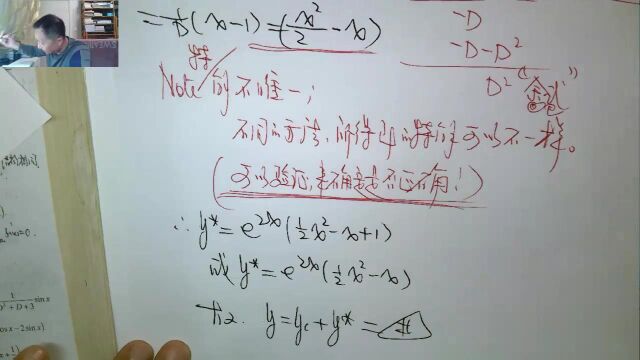 = 1/D (x-1) = (x²/2 - x)
-D
-D-D²
D² "余式"
Note 特解不唯一;
不同的方法,所得到的特解可以不一样。
(可以验证来确定是否正确!)
∴ y* = e^{2x}(½x²-x+1)
或 y* = e^{2x}(½x²-x)
y = y_c + y* =
1/(D²+D+3) sin x
cos x - 2 sin x)